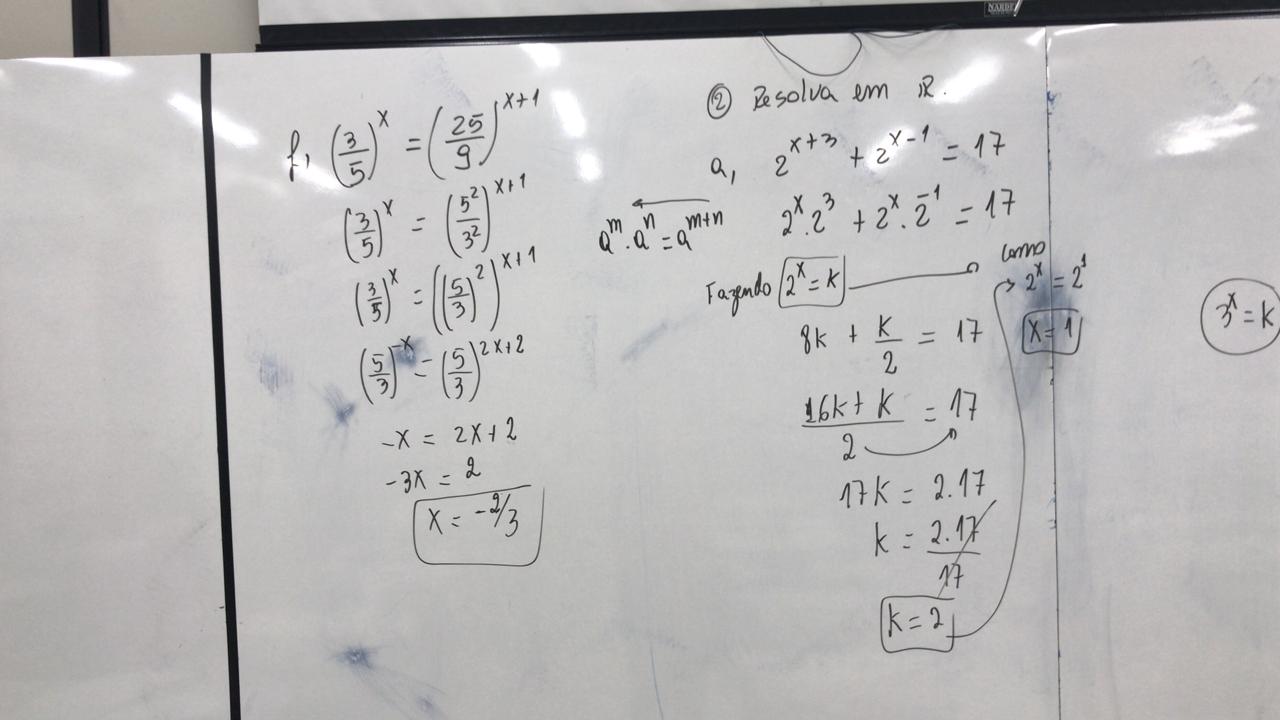 f, (3/5)^x = (25/9)^(x+1)
(3/5)^x = (5^2/3^2)^(x+1)
(3/5)^x = ((5/3)^2)^(x+1)
(5/3)^-x = (5/3)^(2x+2)
-x = 2x+2
-3x = 2
x = -2/3
② Resolva em ℝ.
a, 2^(x+3) + 2^(x-1) = 17
a^m . a^n = a^(m+n)
2^x . 2^3 + 2^x . 2^-1 = 17
Fazendo 2^x = k
8k + k/2 = 17
(16k + k)/2 = 17
17k = 2.17
k = 2.17/17
k = 2
como
2^x = 2^1
x = 1
3^x = k